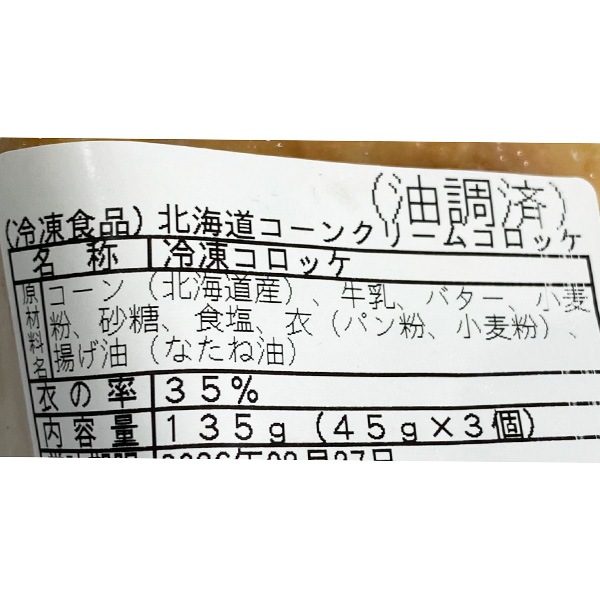 (油調済)
(冷凍食品) 北海道コーンクリームコロッケ
名称 冷凍コロッケ
原材料名 コーン（北海道産）、牛乳、バター、小麦
粉、砂糖、食塩、衣（パン粉、小麦粉）、
揚げ油（なたね油）
衣の率 35%
内容量 135g（45g×3個）